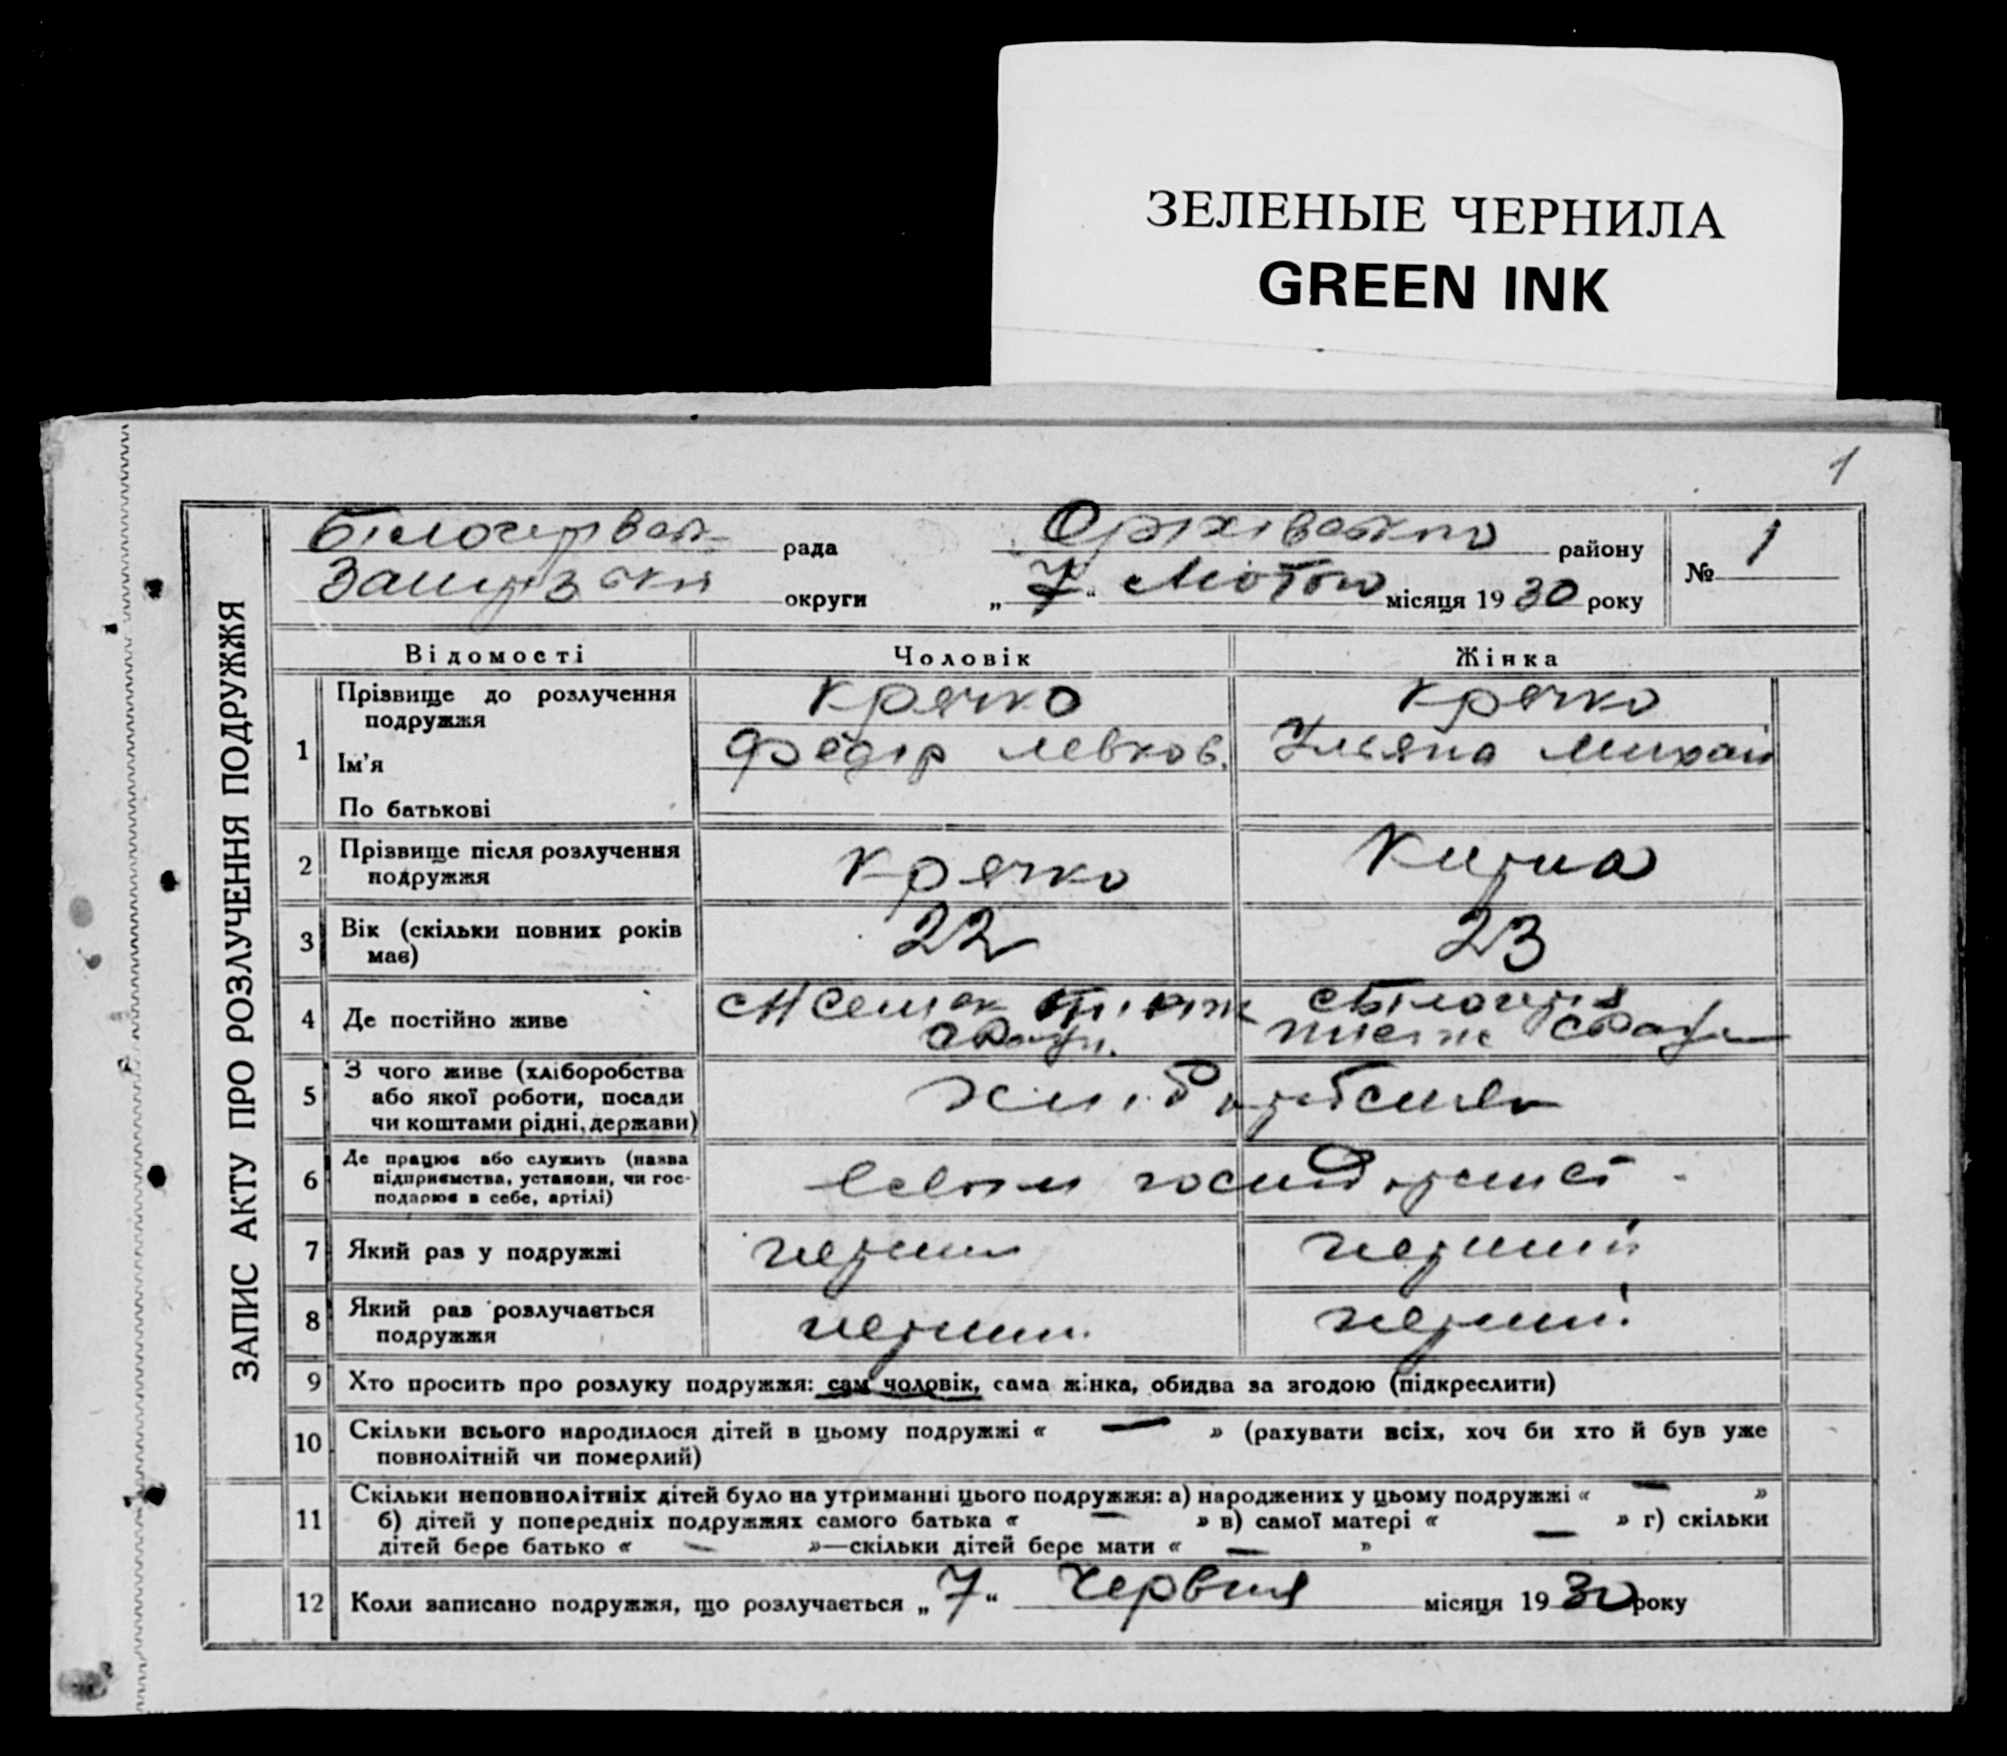 ЗЕЛЕНЫЕ ЧЕРНИЛА
GREEN INK
1
рада
району
№ 1
округи „7“ Лютого місяця 1930 року
ЗАПИС АКТУ ПРО РОЗЛУЧЕННЯ ПОДРУЖЖЯ
Відомості Чоловік Жінка
1 Прізвище до розлучення Крячко Крячко
подружжя
Ім'я Федір Левков. Уляна Михай
По батькові
2 Прізвище після розлучення Крячко
подружжя
3 Вік (скільки повних років 22 23
має)
4 Де постійно живе
5 З чого живе (хліборобства
або якої роботи, посади
чи коштами рідні, держави)
6 Де працює або служить (назва
підприємства, установи, чи гос-
подарює в себе, артілі)
7 Який раз у подружжі перший
8 Який раз розлучається
подружжя перший
9 Хто просить про розлуку подружжя: сам чоловік, сама жінка, обидва за згодою (підкреслити)
10 Скільки всього народилося дітей в цьому подружжі « — » (рахувати всіх, хоч би хто й був уже
повнолітній чи померлий)
11 Скільки неповнолітніх дітей було на утриманні цього подружжя: а) народжених у цьому подружжі « — »
б) дітей у попередніх подружжях самого батька « — » в) самої матері « — » г) скільки
дітей бере батько « — »—скільки дітей бере мати « — »
12 Коли записано подружжя, що розлучається „7“ Червня місяця 1930 року